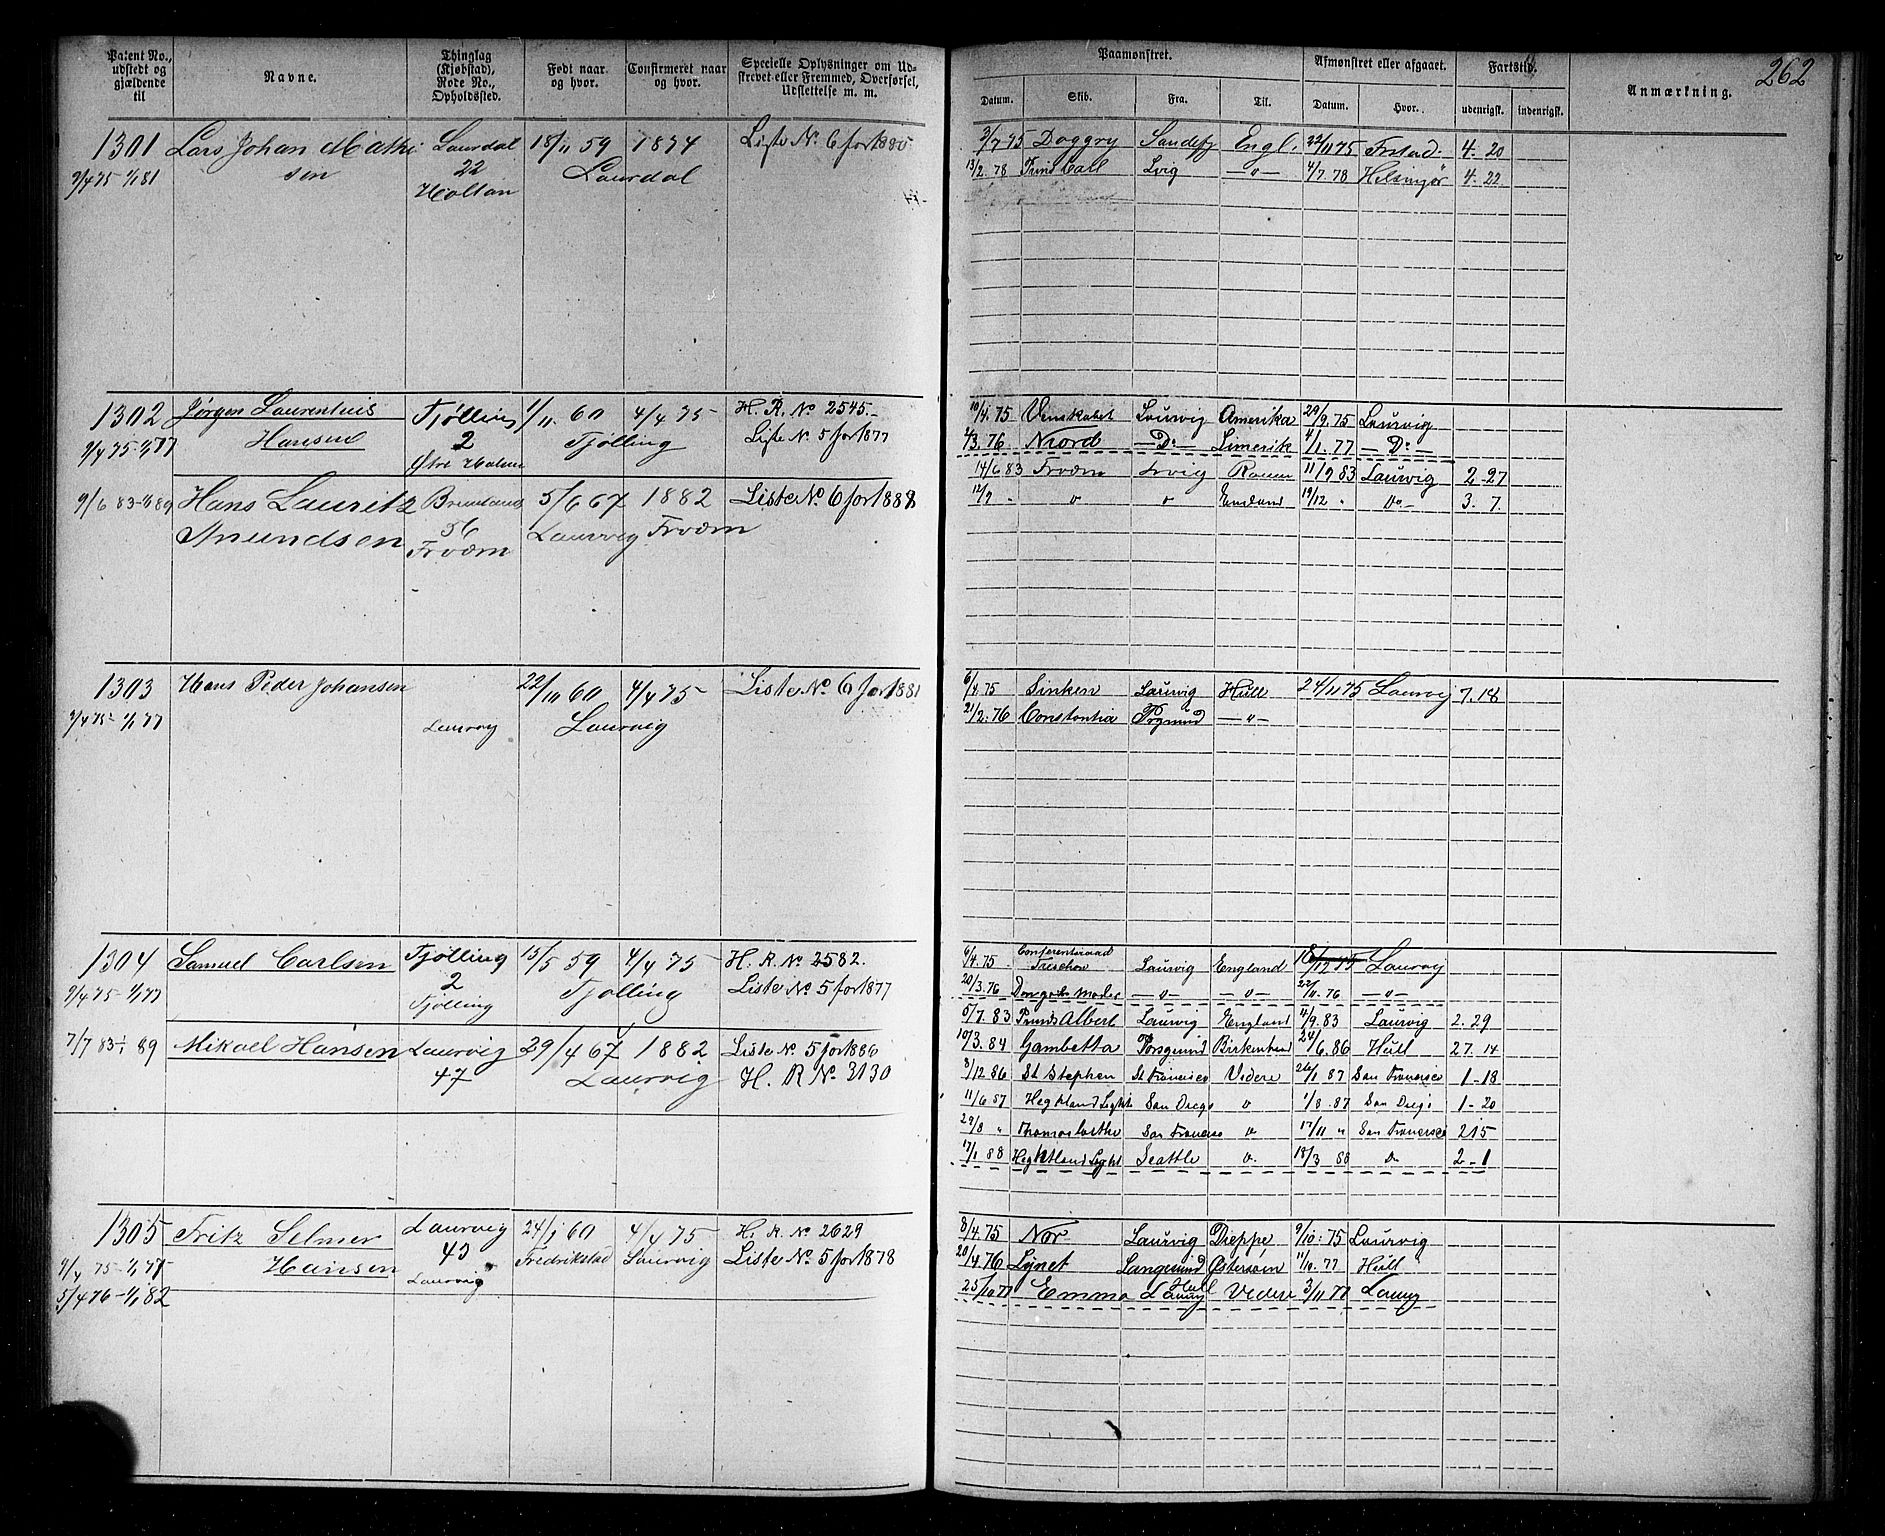 Patent No., udstedt og gjældende til
Navne.
Thinglag (Kjøbstad), Rode No., Opholdssted.
Født naar og hvor.
Confirmeret naar og hvor.
Specielle Oplysninger om Udskrevet eller Fremmed, Overførsel, Udslettelse m. m.
Paamønstret.
Datum.
Skib.
Fra.
Til.
Afmønstret eller afgaaet.
Datum.
Hvor.
Fartstid.
udenrigsk.
indenrigsk.
Anmærkning.
262
1301 Lars Johan Mathi Laurdal 18/11 59 1874 Liste No. 6 for 1880
sen 22 Laurdal
9/4 75 1/1 81 Holtan
3/7 75 Doggry Sandefj Engl. 22/11 75 Frstad. 4. 20
13/2. 78 Lvig —"— 4/7. 78 Helsingør 4. 22
1302 Jørgen Laurentius Tjølling 1/11. 60 4/4 75 H. R. No 2545.
Hansen 2 Tjølling Liste No. 5 for 1877
9/4 75-1/1 77 Østre
10/4. 75 Venskabet Laurvig Amerika 29/9. 75 Laurvig
2/3. 76. Niord —Do— Limerik 4/1. 77 —Do—
14/6 83 Frværn Lvig Rouen 11/9 83 Laurvig 2-27
12/9 " " " England 19/12 " Do— 3. 7.
9/6 83-1/1 89 Hans Lauritz 5/6 67 1882 Liste No. 6 for 1888
Anundsen 56 Laurvig Frværn
Frværn
1303 Hans Peder Johansen 22/11 60 4/4 75 Liste No. 6 for 1881
9/4 75-1/1 77 Laurvig Laurvig
6/4. 75 Sinken Laurvig Hull 24/11 75 Laurvig 7. 18
21/2. 76 Constantia Prgrund —"—
1304 Samuel Carlsen Tjølling 15/5 59 4/4 75 H. R. No. 2582.
9/4 75-1/1 77 2 Tjølling Liste No. 5 for 1877
Tjølling
6/4. 75 Conferentsraad Treschow Laurvig England 16/12 75 Laurvig
20/3. 76 —"— —"— 22/11. 76 —"—
5/7. 83 Prinds Albert Laurvig England 4/9. 83 Laurvig 2. 29
7/7 83-1/1 89 Mikael Hansen Laurvig 29/4 67 1882 Liste No. 5 for 1886
47 Laurvig H. R. No. 3130
10/3. 84 Gambetta Porsgrund Birkenhead 24/6. 86 Hull 27. 14
8/12 86 St Stephen St Francisco Videre 26/1 87 San Francisco 1-18
11/6 87 San Diego " 1/8. 87 San Diego 1-20
29/8 " San Francisco " 17/11 " San Francisco 2 15
17/1 88 Seattle " 18/3 88 Do 2-1
1305 Fritz Selmer Laurvig 24/1 60 4/4 75 H. R. No 2629
Hansen 43 Fredrikstad Laurvig Liste No. 5 for 1878
9/4 75-1/1 77 Laurvig
5/4 76-1/1 82
8/4. 75 Nor Laurvig Dieppe 9/10. 75 Laurvig
20/4. 76 Lynet Langesund Østersøen 11/10. 77 Hull
25/10 77 Emma Hull Laurvig Videre 3/11 77 Laurvig